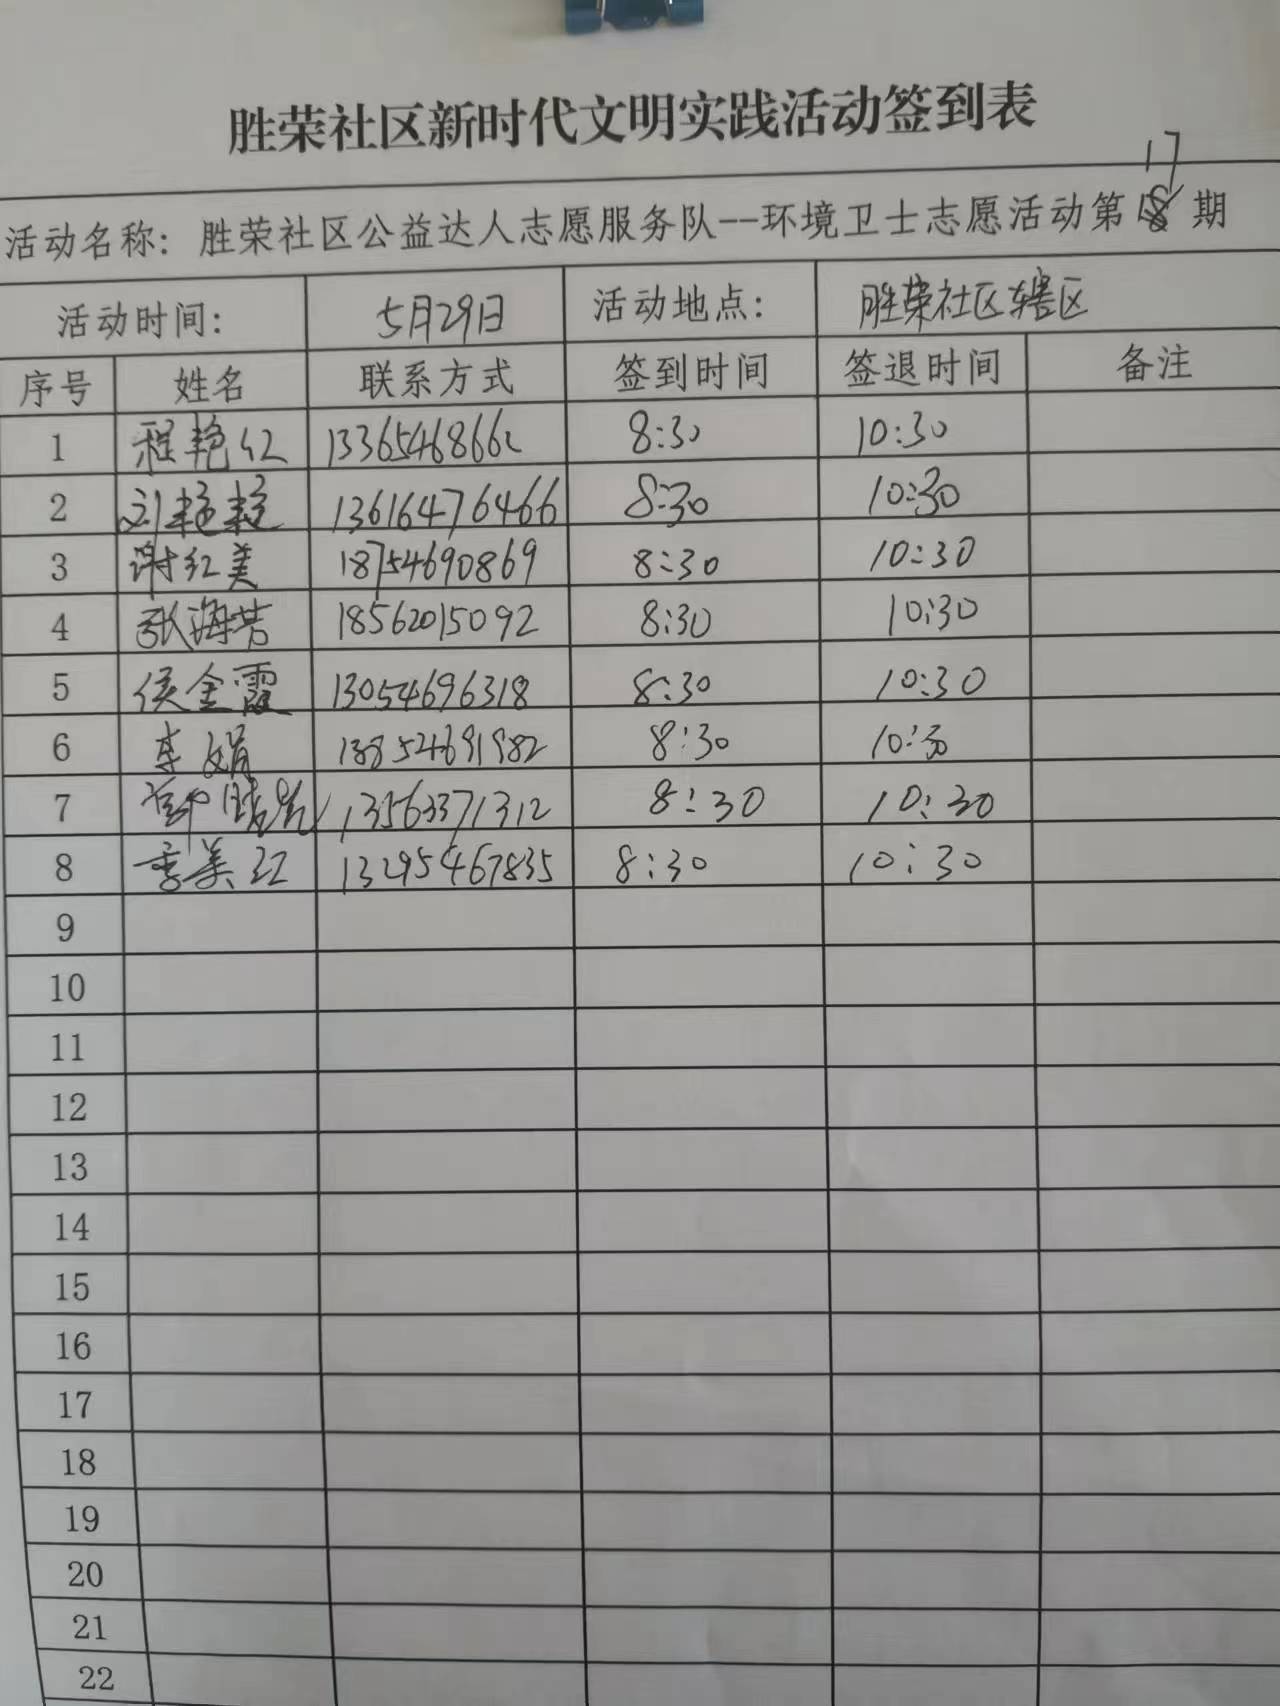 胜荣社区新时代文明实践活动签到表
17
活动名称: 胜荣社区公益达人志愿服务队--环境卫士志愿活动第期
活动时间: 5月29日 活动地点: 胜荣社区辖区
序号 姓名 联系方式 签到时间 签退时间 备注
1 程艳红 1336546866 8:30 10:30
2 刘艳艳 13616476466 8:30 10:30
3 谢红美 18754690869 8:30 10:30
4 张海芳 18562015092 8:30 10:30
5 侯金霞 13054696318 8:30 10:30
6 娟 13854691982 8:30 10:30
7 13563371312 8:30 10:30
8 李美红 13295467835 8:30 10:30
9
10
11
12
13
14
15
16
17
18
19
20
21
22